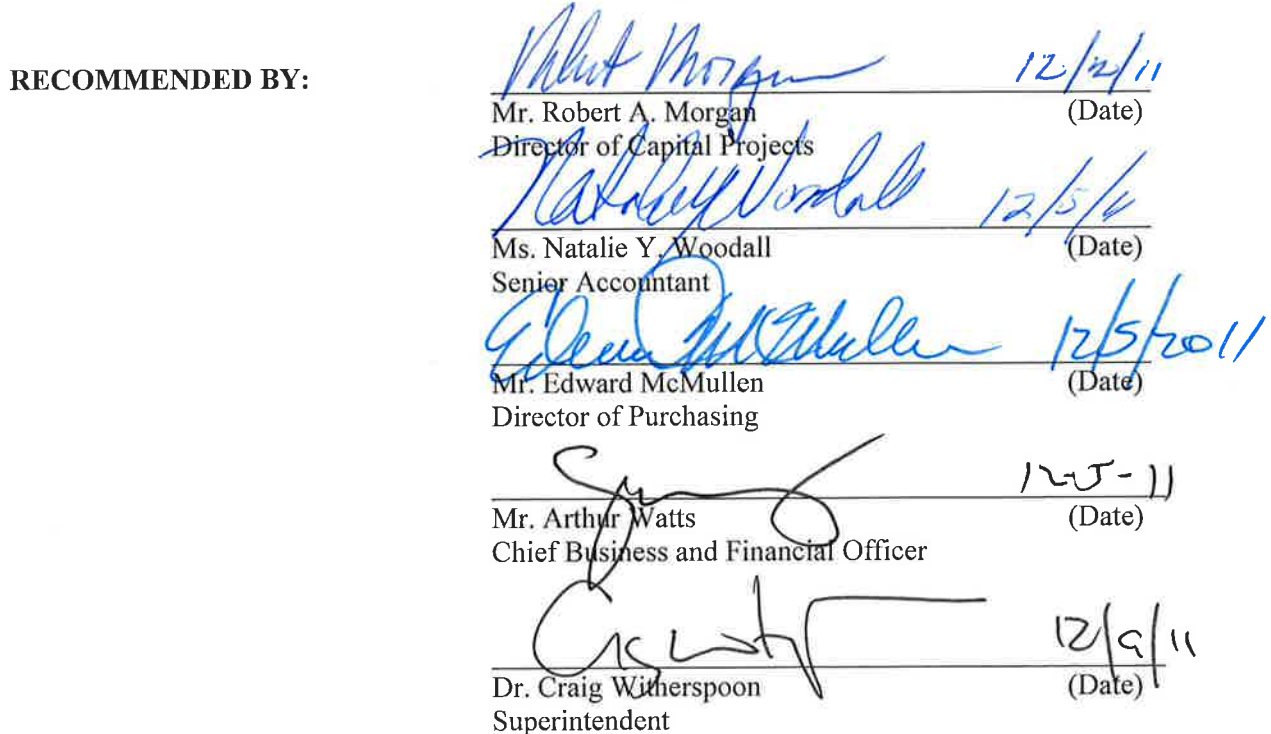 RECOMMENDED BY:
Robert Morgan 12/2/11
Mr. Robert A. Morgan (Date)
Director of Capital Projects
Natalie Y Woodall 12/5/11
Ms. Natalie Y. Woodall (Date)
Senior Accountant
McMullen 12/5/2011
Mr. Edward McMullen (Date)
Director of Purchasing
12-5-11
Mr. Arthur Watts (Date)
Chief Business and Financial Officer
12/9/11
Dr. Craig Witherspoon (Date)
Superintendent